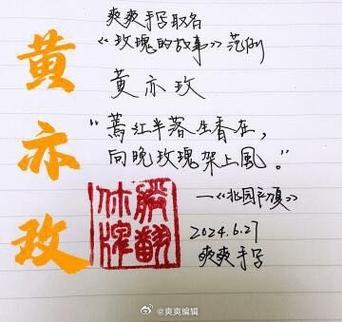 黄亦玫
爽爽手写取名
《玫瑰的故事》范例
黄亦玫
“蔫红半落生香在，
向晚玫瑰架上風。”
2024.6.27
爽爽手写
@爽爽编辑